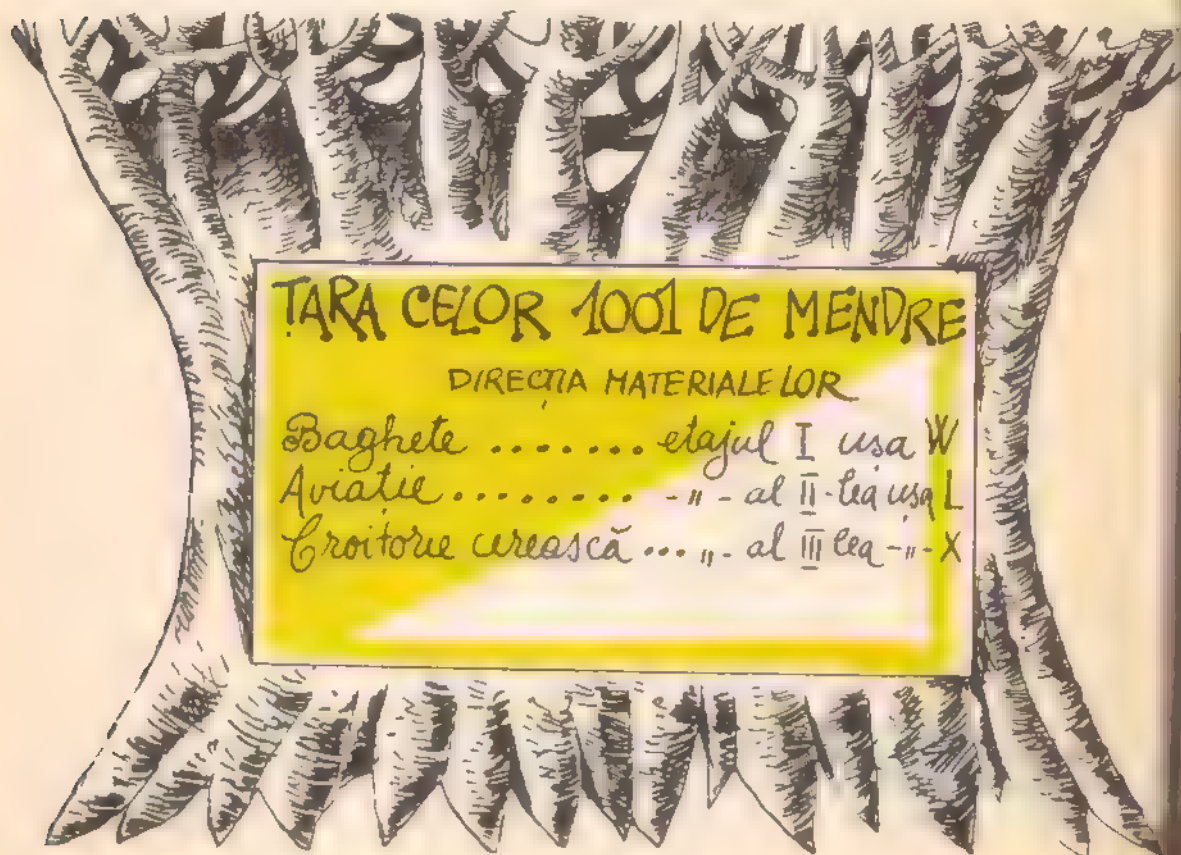 ȚARA CELOR 1001 DE MENDRE
DIRECȚIA MATERIALELOR
Baghete ....... etajul I ușa W
Aviație ......... -„- al II-lea ușa L
Croitorie cerească ... „- al III lea -„- X